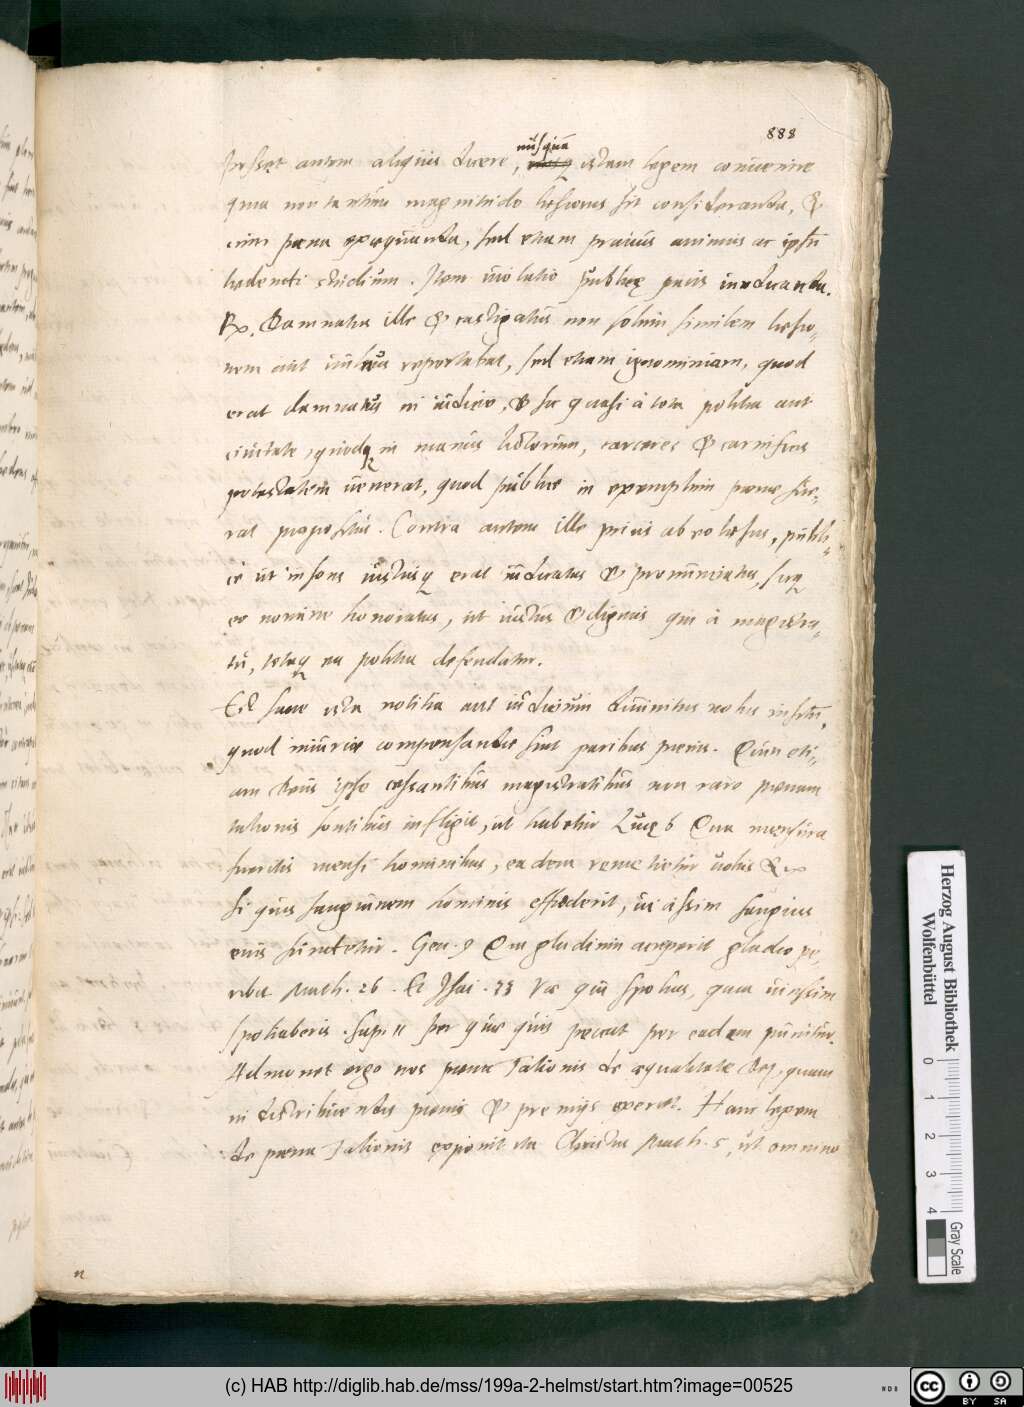 888
nusquā
Posset autem aliquis dicere, istam legem convenire
quia non tantum magnitudo læsionis sit consideranda, &
cum pœna exæquanda, sed etiam pravus animus ac ipsū
lædendi studium. Item violatio publicę pacis
Rx. Damnatus ille & castigatus non solum similem læsio-
nem aut reportabat, sed etiam ignominiam, quod
erat damnatus in iudicio, & sic quasi à tota politia aut
civitate, quodq in manus lictorum, carceres & carnificis
potestatem venerat, quod publice in exemplum pœnæ fue-
rat propositus. Contra autem ille prius ab eo læsus, publi-
cè ut insons iustusq erat iudicatus & pronunciatus, sicq
eo nomine honoratus, ut iustus & dignus qui à magistra-
tu, totaq ea politia defendatur.
Est sane ista notitia aut iudicium divinitus nobis insitū,
quod iniuriæ compensandæ sint paribus pœnis. Cum eti-
am Deus ipse cessantibus magistratibus non raro pœnam
talionis sontibus infligit, ut habetur Lucę 6 Qua mensura
fueritis mensi hominibus, eadem remetietur vobis &
Si quis sanguinem hominis effuderit, vicissim sanguis
eius fundetur. Gen. 9 Qui gladium acceperit gladio pe-
ribit Math. 26. Et Isai. 33 Væ qui spolias, quia vicissim
spoliaberis. Sap. 11 per quæ quis peccat per eadem punitur.
Admonet ergo nos pœna Talionis de æqualitate Dei, quam
in distribuendis pœnis & premijs exercet. Hanc legem
de pœna Talionis exponit ita Christus Math. 5, ut omnino
n
Herzog August Bibliothek
Wolfenbüttel
0 1 2 3 4
Gray Scale
(c) HAB http://diglib.hab.de/mss/199a-2-helmst/start.htm?image=00525
cc
BY SA